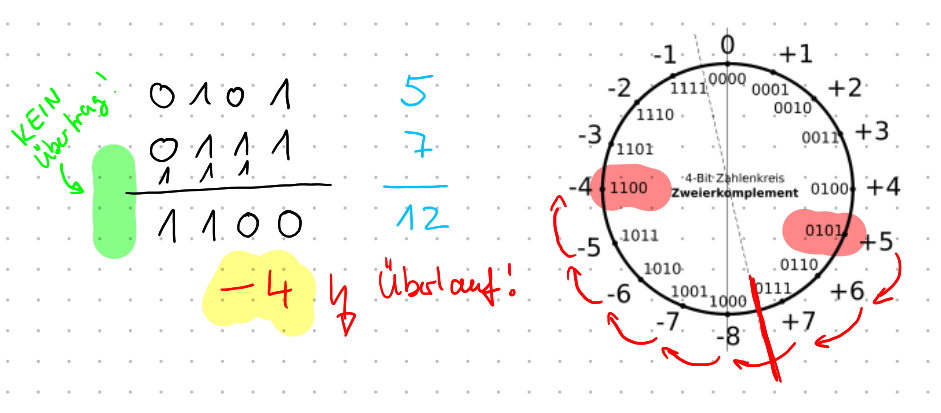 KEIN
Übertrag!
0 1 0 1
5
0 1 1 1
7
1 1 1
1 1 0 0
12
-4 Überlauf!
0
+1
+2
+3
+4
+5
+6
+7
-8
-7
-6
-5
-4
-3
-2
-1
0000
0001
0010
0011
0100
0101
0110
0111
1000
1001
1010
1011
1100
1101
1110
1111
4-Bit Zahlenkreis
Zweierkomplement